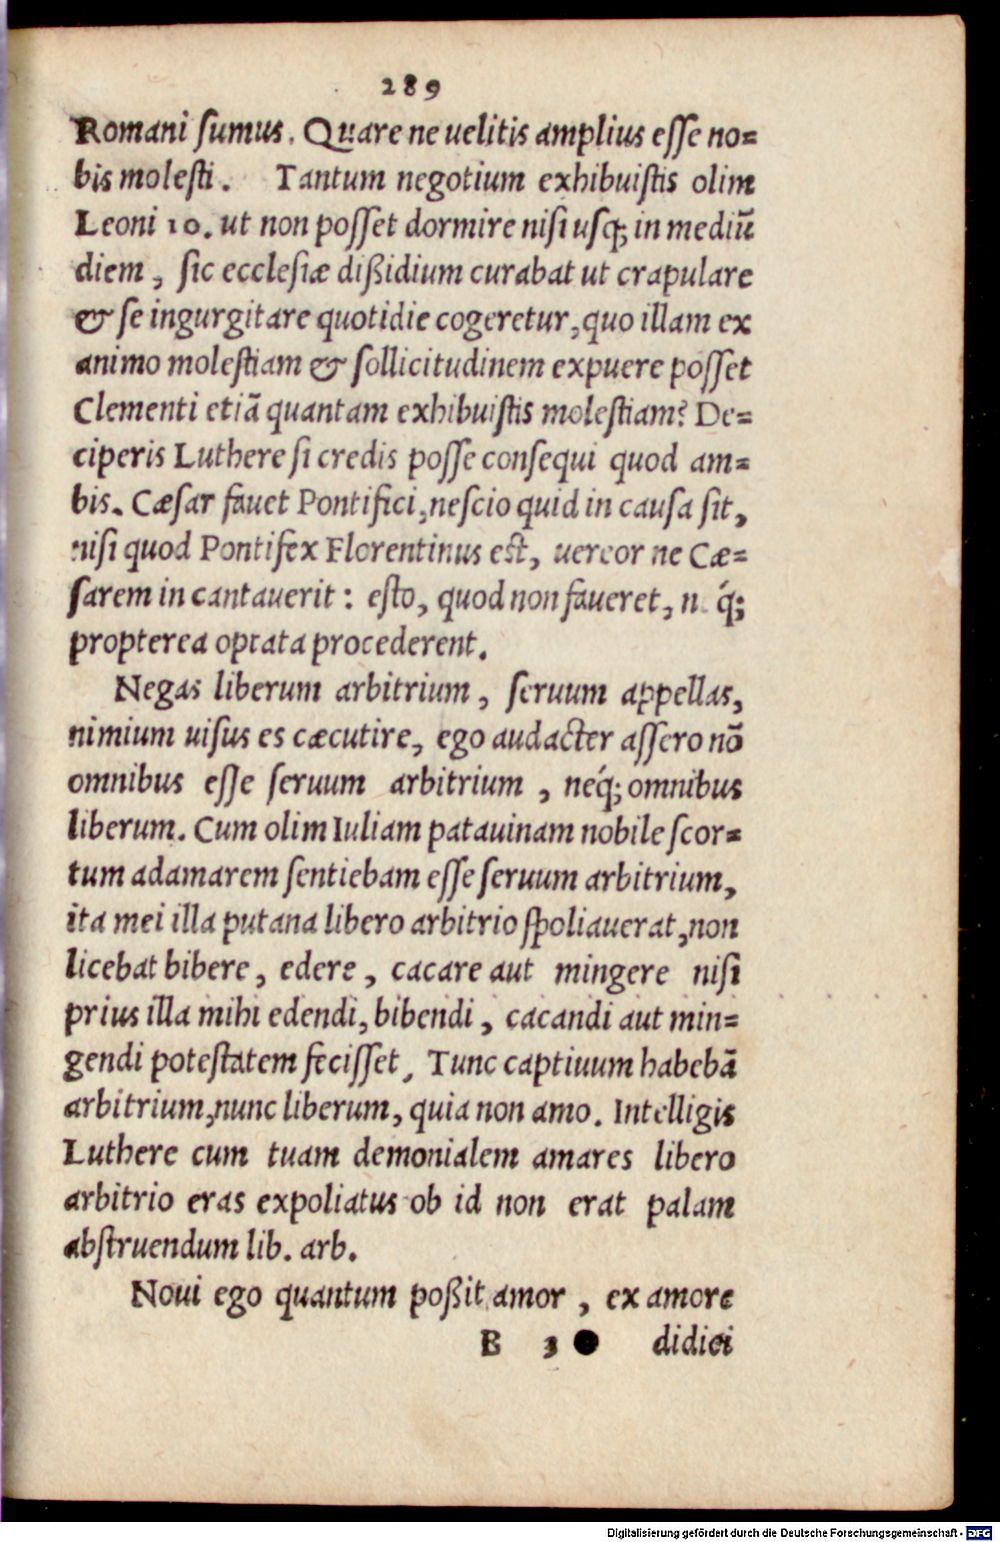 289
Romani ſumus. Quare ne uelitis amplius eſſe no=
bis moleſti. Tantum negotium exhibuiſtis olim
Leoni 10. ut non poſſet dormire niſi uſq; in mediũ
diem, ſic eccleſiæ dißidium curabat ut crapulare
& ſe ingurgitare quotidie cogeretur, quo illam ex
animo moleſtiam & ſollicitudinem expuere poſſet
Clementi etiã quantam exhibuiſtis moleſtiam? De=
ciperis Luthere ſi credis poſſe conſequi quod am=
bis. Cæſar fauet Pontifici, neſcio quid in cauſa ſit,
niſi quod Pontifex Florentinus eſt, uereor ne Cæ=
ſarem in cantauerit: eſto, quod non faueret, n. q́;
propterea optata procederent.
Negas liberum arbitrium, ſeruum appellas,
nimium uiſus es cæcutire, ego audacter aſſero nõ
omnibus eſſe ſeruum arbitrium, neq́; omnibus
liberum. Cum olim Iuliam patauinam nobile ſcor=
tum adamarem ſentiebam eſſe ſeruum arbitrium,
ita mei illa putana libero arbitrio ſpoliauerat, non
licebat bibere, edere, cacare aut mingere niſi
prius illa mihi edendi, bibendi, cacandi aut min=
gendi poteſtatem feciſſet, Tunc captiuum habebã
arbitrium, nunc liberum, quia non amo. Intelligis
Luthere cum tuam demonialem amares libero
arbitrio eras expoliatus ob id non erat palam
abſtruendum lib. arb.
Noui ego quantum poßit amor, ex amore
B 3 didici
Digitalisierung gefördert durch die Deutsche Forschungsgemeinschaft - DFG